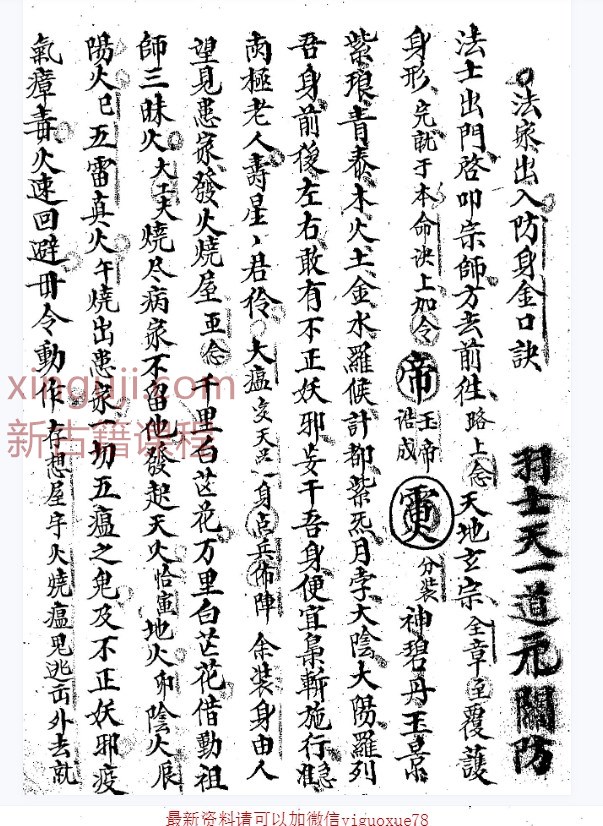 法家出入防身金口訣
羽士天一道元關防
法士出門啓叩宗師方去前往路上念天地玄宗全章至覆護
身形完就于本命訣上加令帝玉帝誥成分裝神碧丹玉景
紫琅青泰木火土金水羅候計都紫炁月孛大陰大陽羅列
吾身前後左右敢有不正妖邪妄干吾身便宜梟斬施行准急
南極老人壽星君伶大瘟交天一身点兵佈陣余裝身由人
望見患家發火燒屋並念千里白芒花万里白芒花借動祖
師三昧火大工夫燒尽病家不留他發起天火恰寅地火卯陰火辰
陽火巳五雷真火午燒出患家一切五瘟之鬼及不正妖邪疫
氣瘴毒火速回避毋令動作存想屋宇火燒瘟見逃出外去就
xinguji.com
新古籍课程
最新资料请可以加微信yiguoxue78